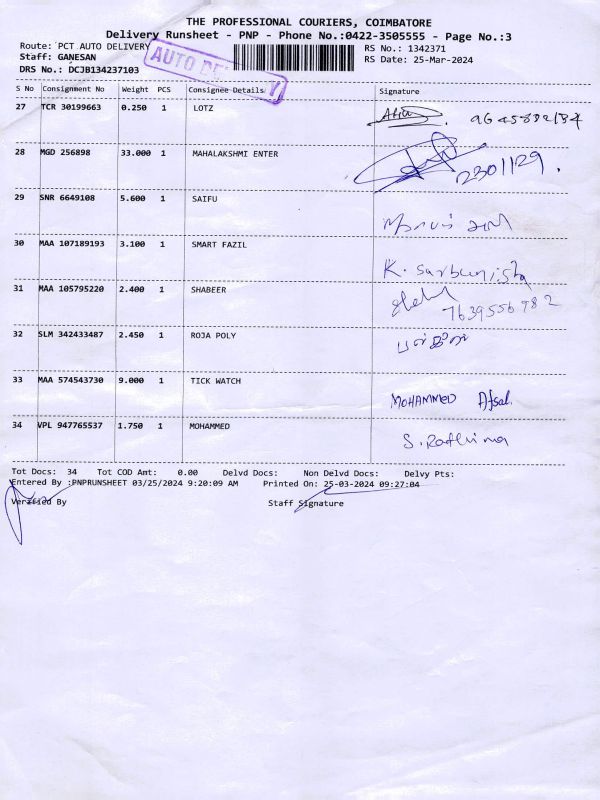 THE PROFESSIONAL COURIERS, COIMBATORE
Delivery Runsheet - PNP - Phone No.:0422-3505555 - Page No.:3
Route: PCT AUTO DELIVERY
RS No.: 1342371
Staff: GANESAN
RS Date: 25-Mar-2024
DRS No.: DCJB134237103
AUTO
S No Consignment No Weight PCS Consignee Details Signature
27 TCR 30199663 0.250 1 LOTZ
28 MGD 256898 33.000 1 MAHALAKSHMI ENTER
2301129.
29 SNR 6649108 5.600 1 SAIFU
30 MAA 107189193 3.100 1 SMART FAZIL
K. Sarbunisha
31 MAA 105795220 2.400 1 SHABEER
7639556782
32 SLM 342433487 2.450 1 ROJA POLY
33 MAA 574543730 9.000 1 TICK WATCH
MOHAMMED Afsal.
34 VPL 947765537 1.750 1 MOHAMMED
S. Rathima
Tot Docs: 34 Tot COD Amt: 0.00 Delvd Docs: Non Delvd Docs: Delvy Pts:
Entered By :PNPRUNSHEET 03/25/2024 9:20:09 AM Printed On: 25-03-2024 09:27:04
Verified By Staff Signature